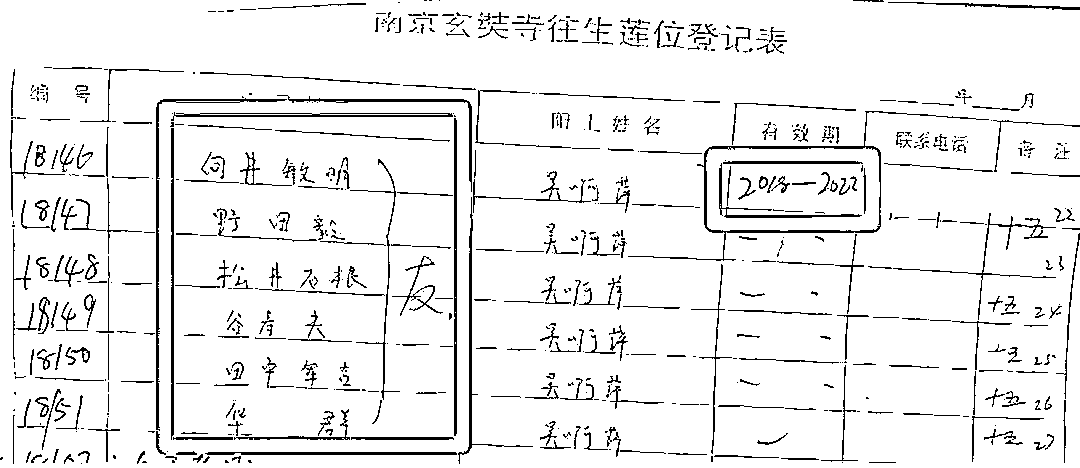 南京玄奘寺往生莲位登记表
年 月
编 号 阳上姓名 有效期 联系电话 备注
18146 向井敏明 吴啊萍 2018—2022 十五 22
18147 野田毅 吴啊萍 23
18148 松井石根 吴啊萍 十五 24
18149 谷寿夫 吴啊萍 十五 25
18150 田中军吉 吴啊萍 十五 26
18151 华群 吴啊萍 十五 27
友